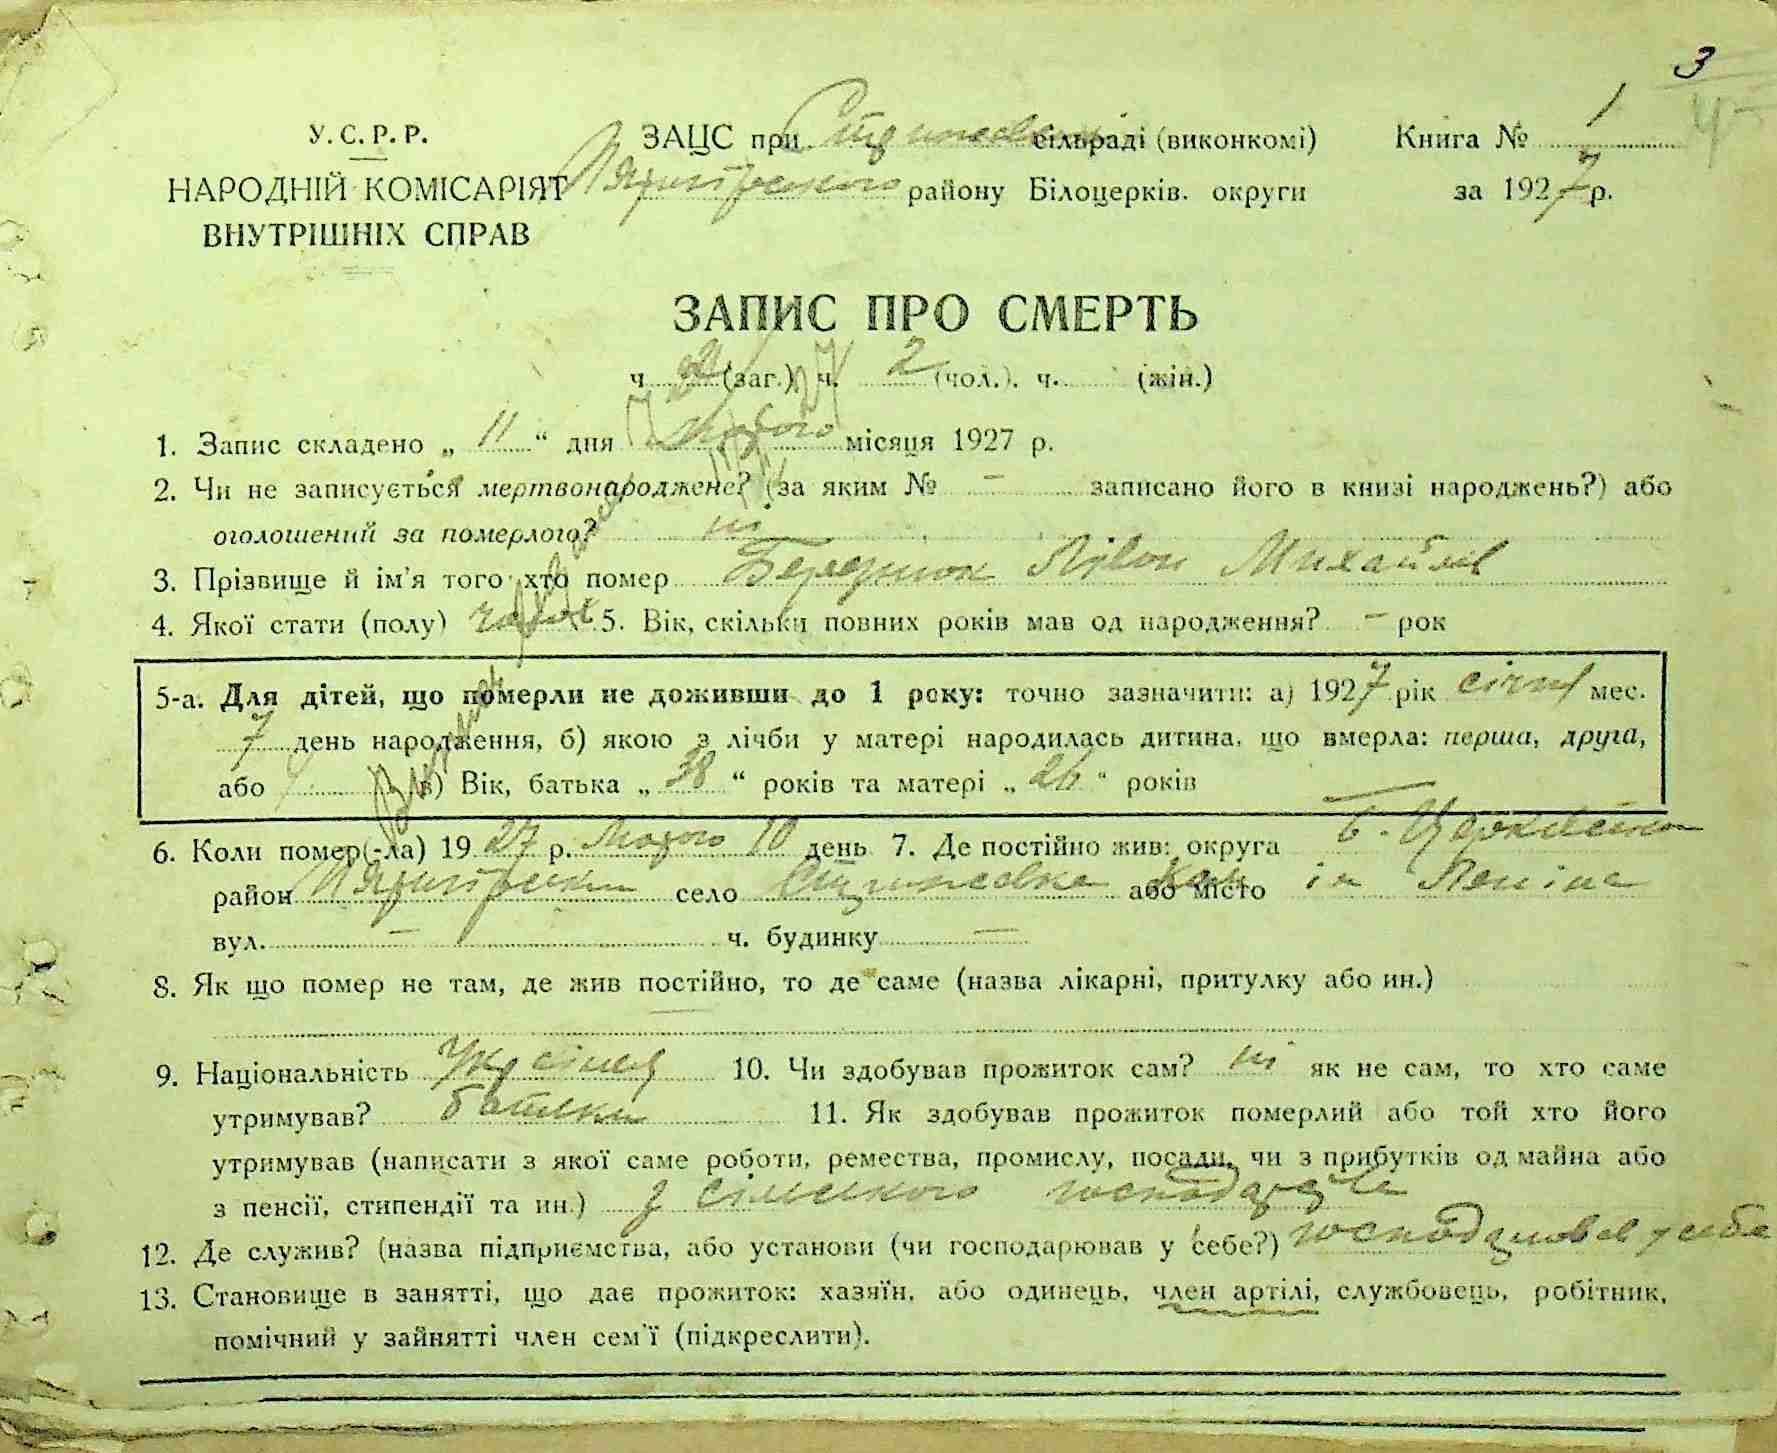 3
У. С. Р. Р.
НАРОДНІЙ КОМІСАРІЯТ
ВНУТРІШНІХ СПРАВ
ЗАЦС при сільраді (виконкомі)
району Білоцерків. округи
Книга № 1
за 1927 р.
ЗАПИС ПРО СМЕРТЬ
ч 2 (заг.) ч. 2 (чол.). ч. (жін.)
1. Запис складено „ 11 “ дня Лютого місяця 1927 р.
2. Чи не записується мертвонароджене? (за яким № – записано його в книзі народжень?) або
оголошений за померлого? ні
3. Прізвище й ім'я того хто помер Михайлів
4. Якої стати (полу) чолов. 5. Вік, скільки повних років мав од народження? – рок
5-а. Для дітей, що померли не доживши до 1 року: точно зазначити: а) 1927 рік січня мес.
7 день народження, б) якою з лічби у матері народилась дитина, що вмерла: перша, друга,
або в) Вік, батька „ 38 “ років та матері „ 26 “ років
6. Коли помер(-ла) 1927 р. Лютого 10 день 7. Де постійно жив: округа Б. Церківська
район село або місто ім Леніна
вул. – ч. будинку –
8. Як що помер не там, де жив постійно, то де саме (назва лікарні, притулку або ин.)
9. Національність 10. Чи здобував прожиток сам? ні як не сам, то хто саме
утримував? батьки 11. Як здобував прожиток померлий або той хто його
утримував (написати з якої саме роботи, ремества, промислу, посади, чи з прибутків од майна або
з пенсії, стипендії та ин.) з сільського господарства
12. Де служив? (назва підприємства, або установи (чи господарював у себе?) господарював у себе
13. Становище в занятті, що дає прожиток: хазяїн, або одинець, член артілі, службовець, робітник,
помічний у зайнятті член сем'ї (підкреслити).